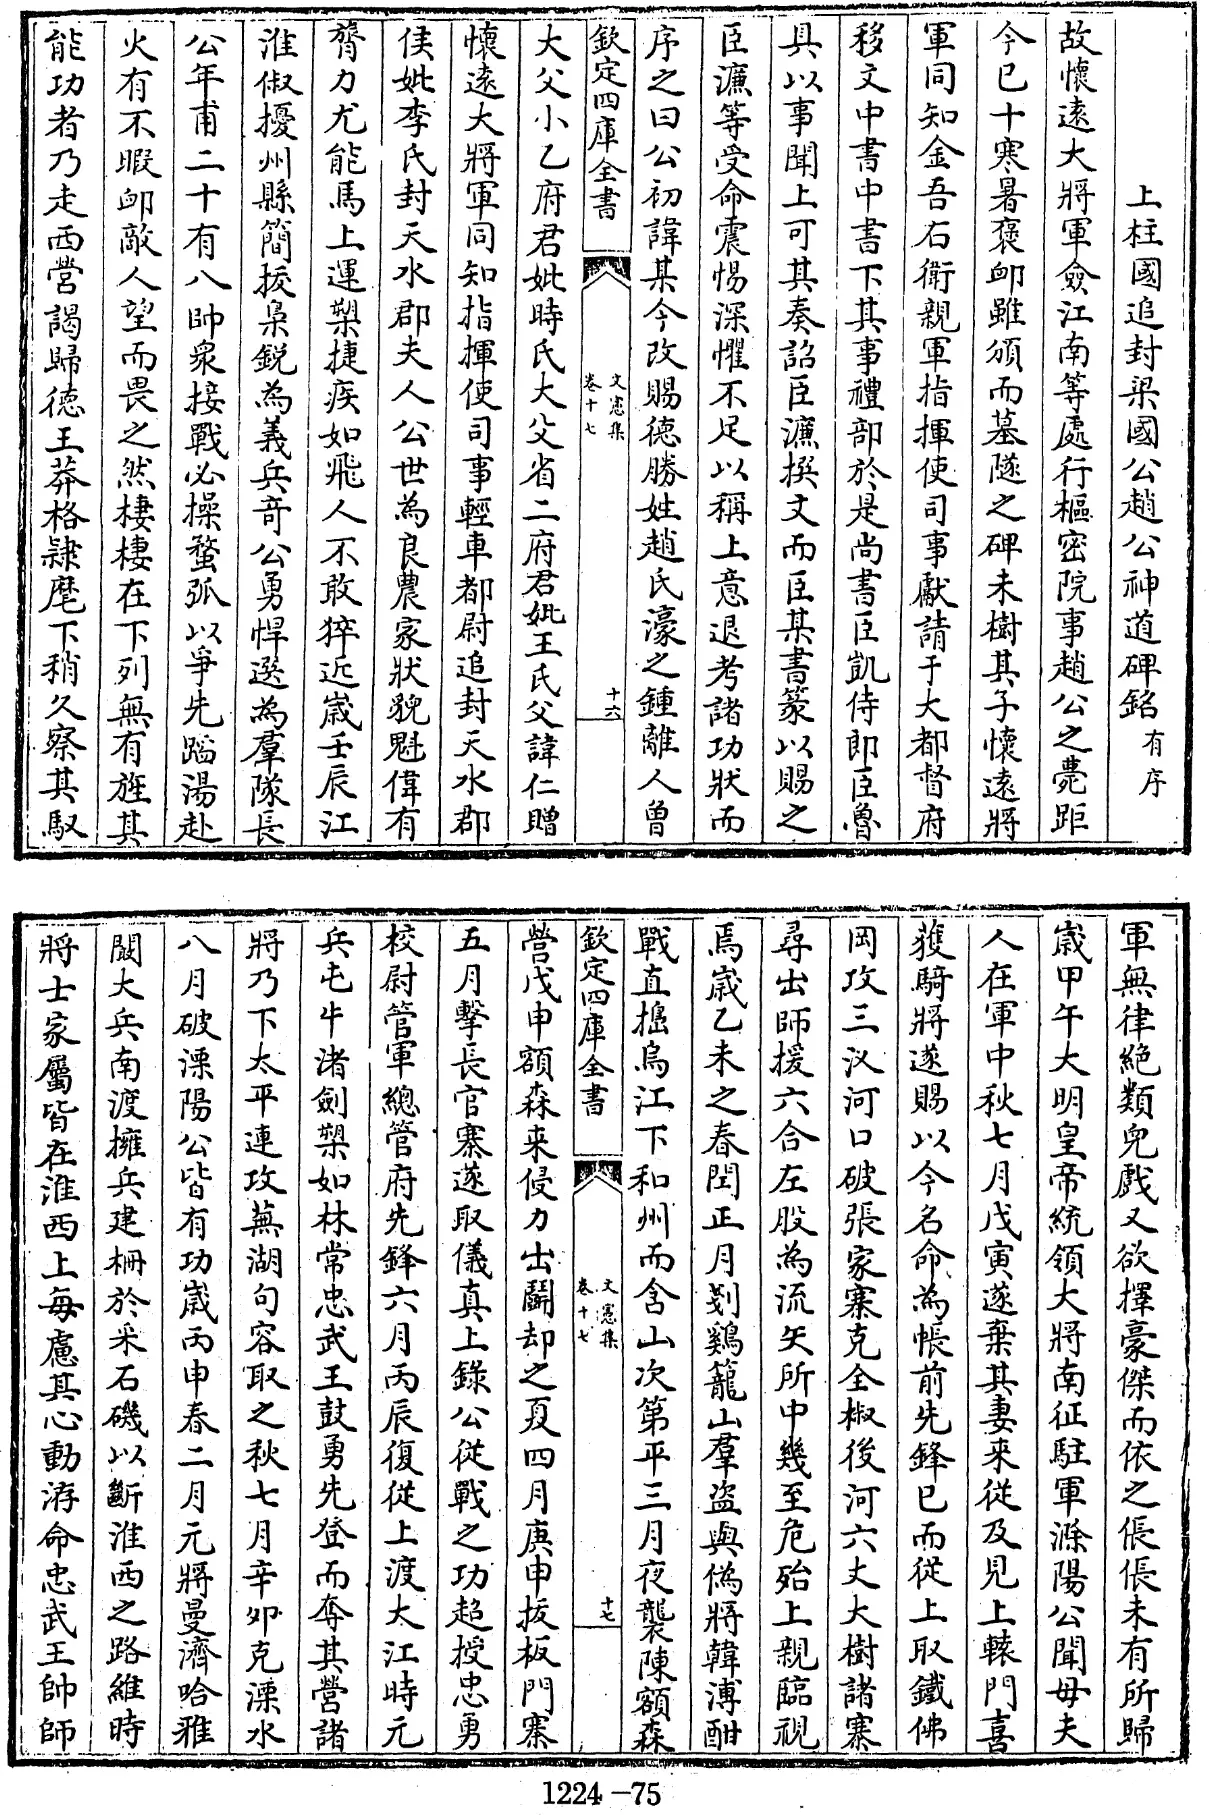 上柱國追封梁國公趙公神道碑銘有序
故懷遠大將軍僉江南等處行樞密院事趙公之薨距
今已十寒暑褒卹雖頒而墓隧之碑未樹其子懷遠將
軍同知金吾右衛親軍指揮使司事獻請于大都督府
移文中書中書下其事禮部於是尚書臣凱侍郎臣魯
具以事聞上可其奏詔臣濂撰文而臣某書篆以賜之
臣濂等受命震惕深懼不足以稱上意退考諸功狀而
序之曰公初諱某今改賜德勝姓趙氏濠之鍾離人曾
欽定四庫全書
文憲集
卷十七
十六
大父小乙府君妣時氏大父省二府君妣王氏父諱仁贈
懷遠大將軍同知指揮使司事輕車都尉追封天水郡
侯妣李氏封天水郡夫人公世為良農家狀貌魁偉有
膂力尤能馬上運槊捷疾如飛人不敢猝近歲壬辰江
淮俶擾州縣簡拔梟銳為義兵奇公勇悍選為羣隊長
公年甫二十有八帥衆接戰必操蝥弧以爭先蹈湯赴
火有不暇卹敵人望而畏之然棲棲在下列無有旌其
能功者乃走西營謁歸德王莽格隷麾下稍久察其馭
軍無律絶類兒戲又欲擇豪傑而依之倀倀未有所歸
歲甲午大明皇帝統領大將南征駐軍滁陽公聞母夫
人在軍中秋七月戊寅遂棄其妻來從及見上轅門喜
獲騎將遂賜以今名命為帳前先鋒已而從上取鐵佛
岡攻三汊河口破張家寨克全椒後河六丈大樹諸寨
尋出師援六合左股為流矢所中幾至危殆上親臨視
焉歲乙未之春閏正月剗鷄籠山羣盜與偽將韓溥酣
戰直搗烏江下和州而含山次第平三月夜襲陳額森
欽定四庫全書
文憲集
卷十七
十七
營戊申額森來侵力出鬭却之夏四月庚申拔板門寨
五月擊長官寨遂取儀真上錄公從戰之功超授忠勇
校尉管軍總管府先鋒六月丙辰復從上渡大江時元
兵屯牛渚劍槊如林常忠武王鼓勇先登而奪其營諸
將乃下太平連攻蕪湖句容取之秋七月辛卯克溧水
八月破溧陽公皆有功歲丙申春二月元將曼濟哈雅
闞大兵南渡擁兵建柵於采石磯以斷淮西之路維時
將士家屬皆在淮西上每慮其心動洊命忠武王帥師
1224-75